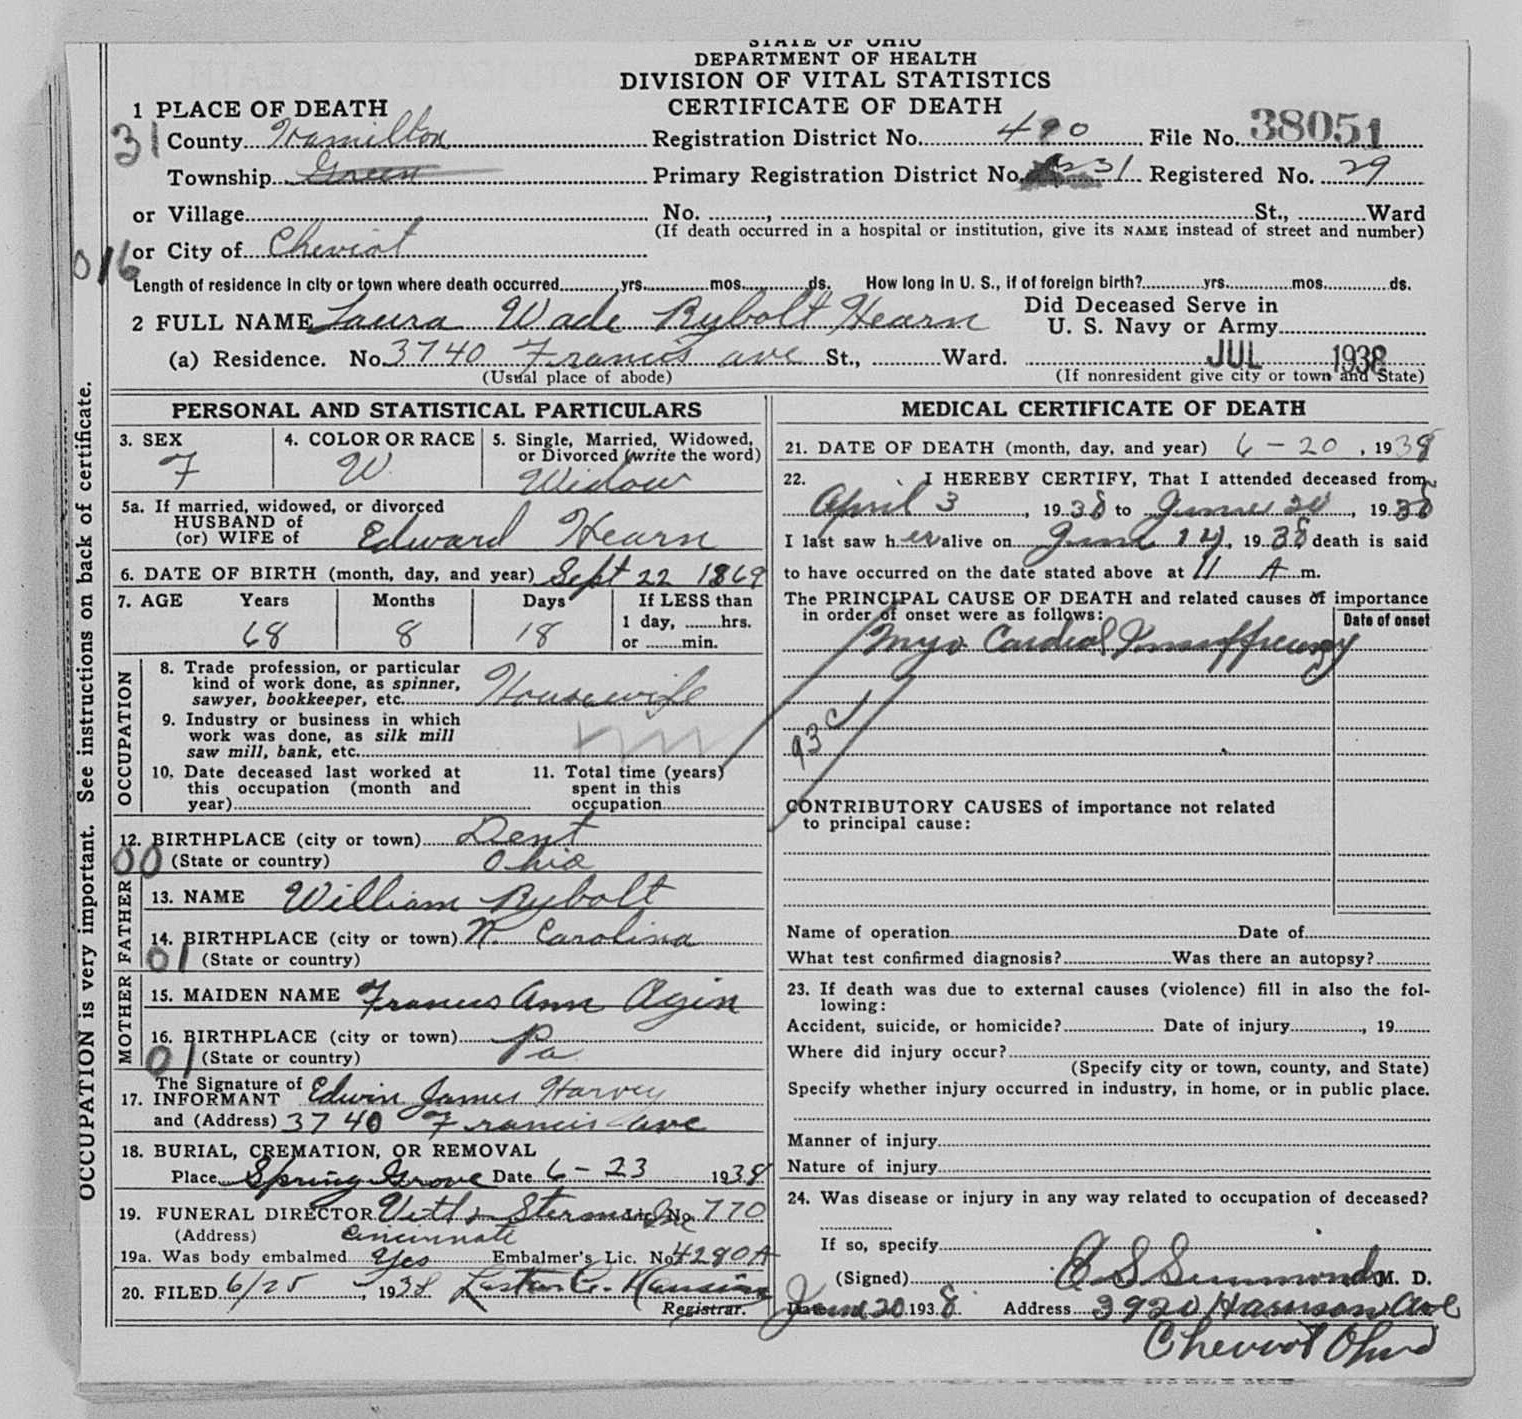 STATE OF OHIO
DEPARTMENT OF HEALTH
DIVISION OF VITAL STATISTICS
CERTIFICATE OF DEATH
1 PLACE OF DEATH
31
County Hamilton Registration District No. 490 File No. 38051
Township Green Primary Registration District No. 31 Registered No. 29
or Village No. , St., Ward
(If death occurred in a hospital or institution, give its NAME instead of street and number)
016
or City of Cheviot
Length of residence in city or town where death occurred yrs. mos. ds. How long in U. S., if of foreign birth? yrs. mos. ds.
2 FULL NAME Laura Wade Rybolt Hearn Did Deceased Serve in U. S. Navy or Army
(a) Residence. No. 3740 Francis ave St., Ward. JUL 1938
(Usual place of abode) (If nonresident give city or town and State)
OCCUPATION is very important. See instructions on back of certificate.
PERSONAL AND STATISTICAL PARTICULARS
3. SEX 4. COLOR OR RACE 5. Single, Married, Widowed, or Divorced (write the word)
F W Widow
5a. If married, widowed, or divorced
HUSBAND of
(or) WIFE of Edward Hearn
6. DATE OF BIRTH (month, day, and year) Sept 22 1869
7. AGE Years Months Days If LESS than
1 day, hrs.
68 8 18 or min.
OCCUPATION
8. Trade profession, or particular
kind of work done, as spinner,
sawyer, bookkeeper, etc. Housewife
9. Industry or business in which
work was done, as silk mill
saw mill, bank, etc.
10. Date deceased last worked at this occupation (month and year) 11. Total time (years) spent in this occupation
12. BIRTHPLACE (city or town) Dent
00 (State or country) Ohio
FATHER
13. NAME William Rybolt
14. BIRTHPLACE (city or town) N. Carolina
01 (State or country)
MOTHER
15. MAIDEN NAME Francis Ann Agin
16. BIRTHPLACE (city or town) Pa
01 (State or country)
The Signature of
17. INFORMANT Edwin James Harvey
and (Address) 3740 Francis ave
18. BURIAL, CREMATION, OR REMOVAL
Place Spring Grove Date 6-23 1938
19. FUNERAL DIRECTOR Lic. No. 770
(Address) Cincinnati
19a. Was body embalmed Yes Embalmer's Lic. No. 4280A
20. FILED 6/25, 1938
Registrar.
MEDICAL CERTIFICATE OF DEATH
21. DATE OF DEATH (month, day, and year) 6-20, 1938
22. I HEREBY CERTIFY, That I attended deceased from
April 3, 1938 to June 20, 1938
I last saw her alive on June 19, 1938 death is said
to have occurred on the date stated above at 11 A m.
The PRINCIPAL CAUSE OF DEATH and related causes of importance
in order of onset were as follows: Date of onset
Myo Cardial Insufficiency
93c
CONTRIBUTORY CAUSES of importance not related
to principal cause:
Name of operation Date of
What test confirmed diagnosis? Was there an autopsy?
23. If death was due to external causes (violence) fill in also the fol-
lowing:
Accident, suicide, or homicide? Date of injury, 19
Where did injury occur?
(Specify city or town, county, and State)
Specify whether injury occurred in industry, in home, or in public place.
Manner of injury
Nature of injury
24. Was disease or injury in any way related to occupation of deceased?
If so, specify
(Signed) C S Simmonds M. D.
Date June 20 1938 Address 3920 Harrison Ave
Cheviot Ohio